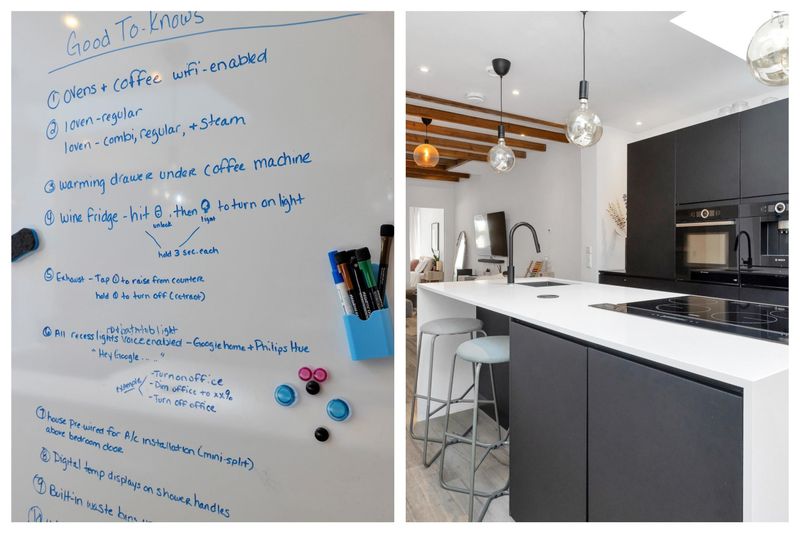 Good To-Knows
① Ovens + Coffee wifi-enabled
② 1 oven-regular
1 oven-combi, regular, + Steam
③ warming drawer under coffee machine
④ wine fridge - hit , then to turn on light
unlock light
hold 3 sec. each
⑤ Exhaust - Tap to raise from counter
hold to turn off (retract)
light
⑥ All recess lights voice enabled - Google home + Philips Hue
"Hey Google....."
- Turn on office
- Dim office to xx%
- Turn off office
⑦ house pre-wired for A/c installation (mini-split)
above bedroom door
⑧ Digital temp displays on shower handles
⑨ Built-in waste bins